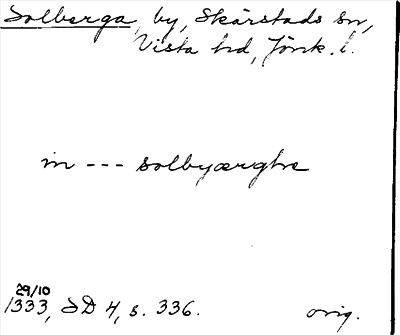 Solberga, by, Skärstads sn,
Vista hd, Jönk. l.
in --- solbyærghe
29/10
1333, SD 4, s. 336. orig.